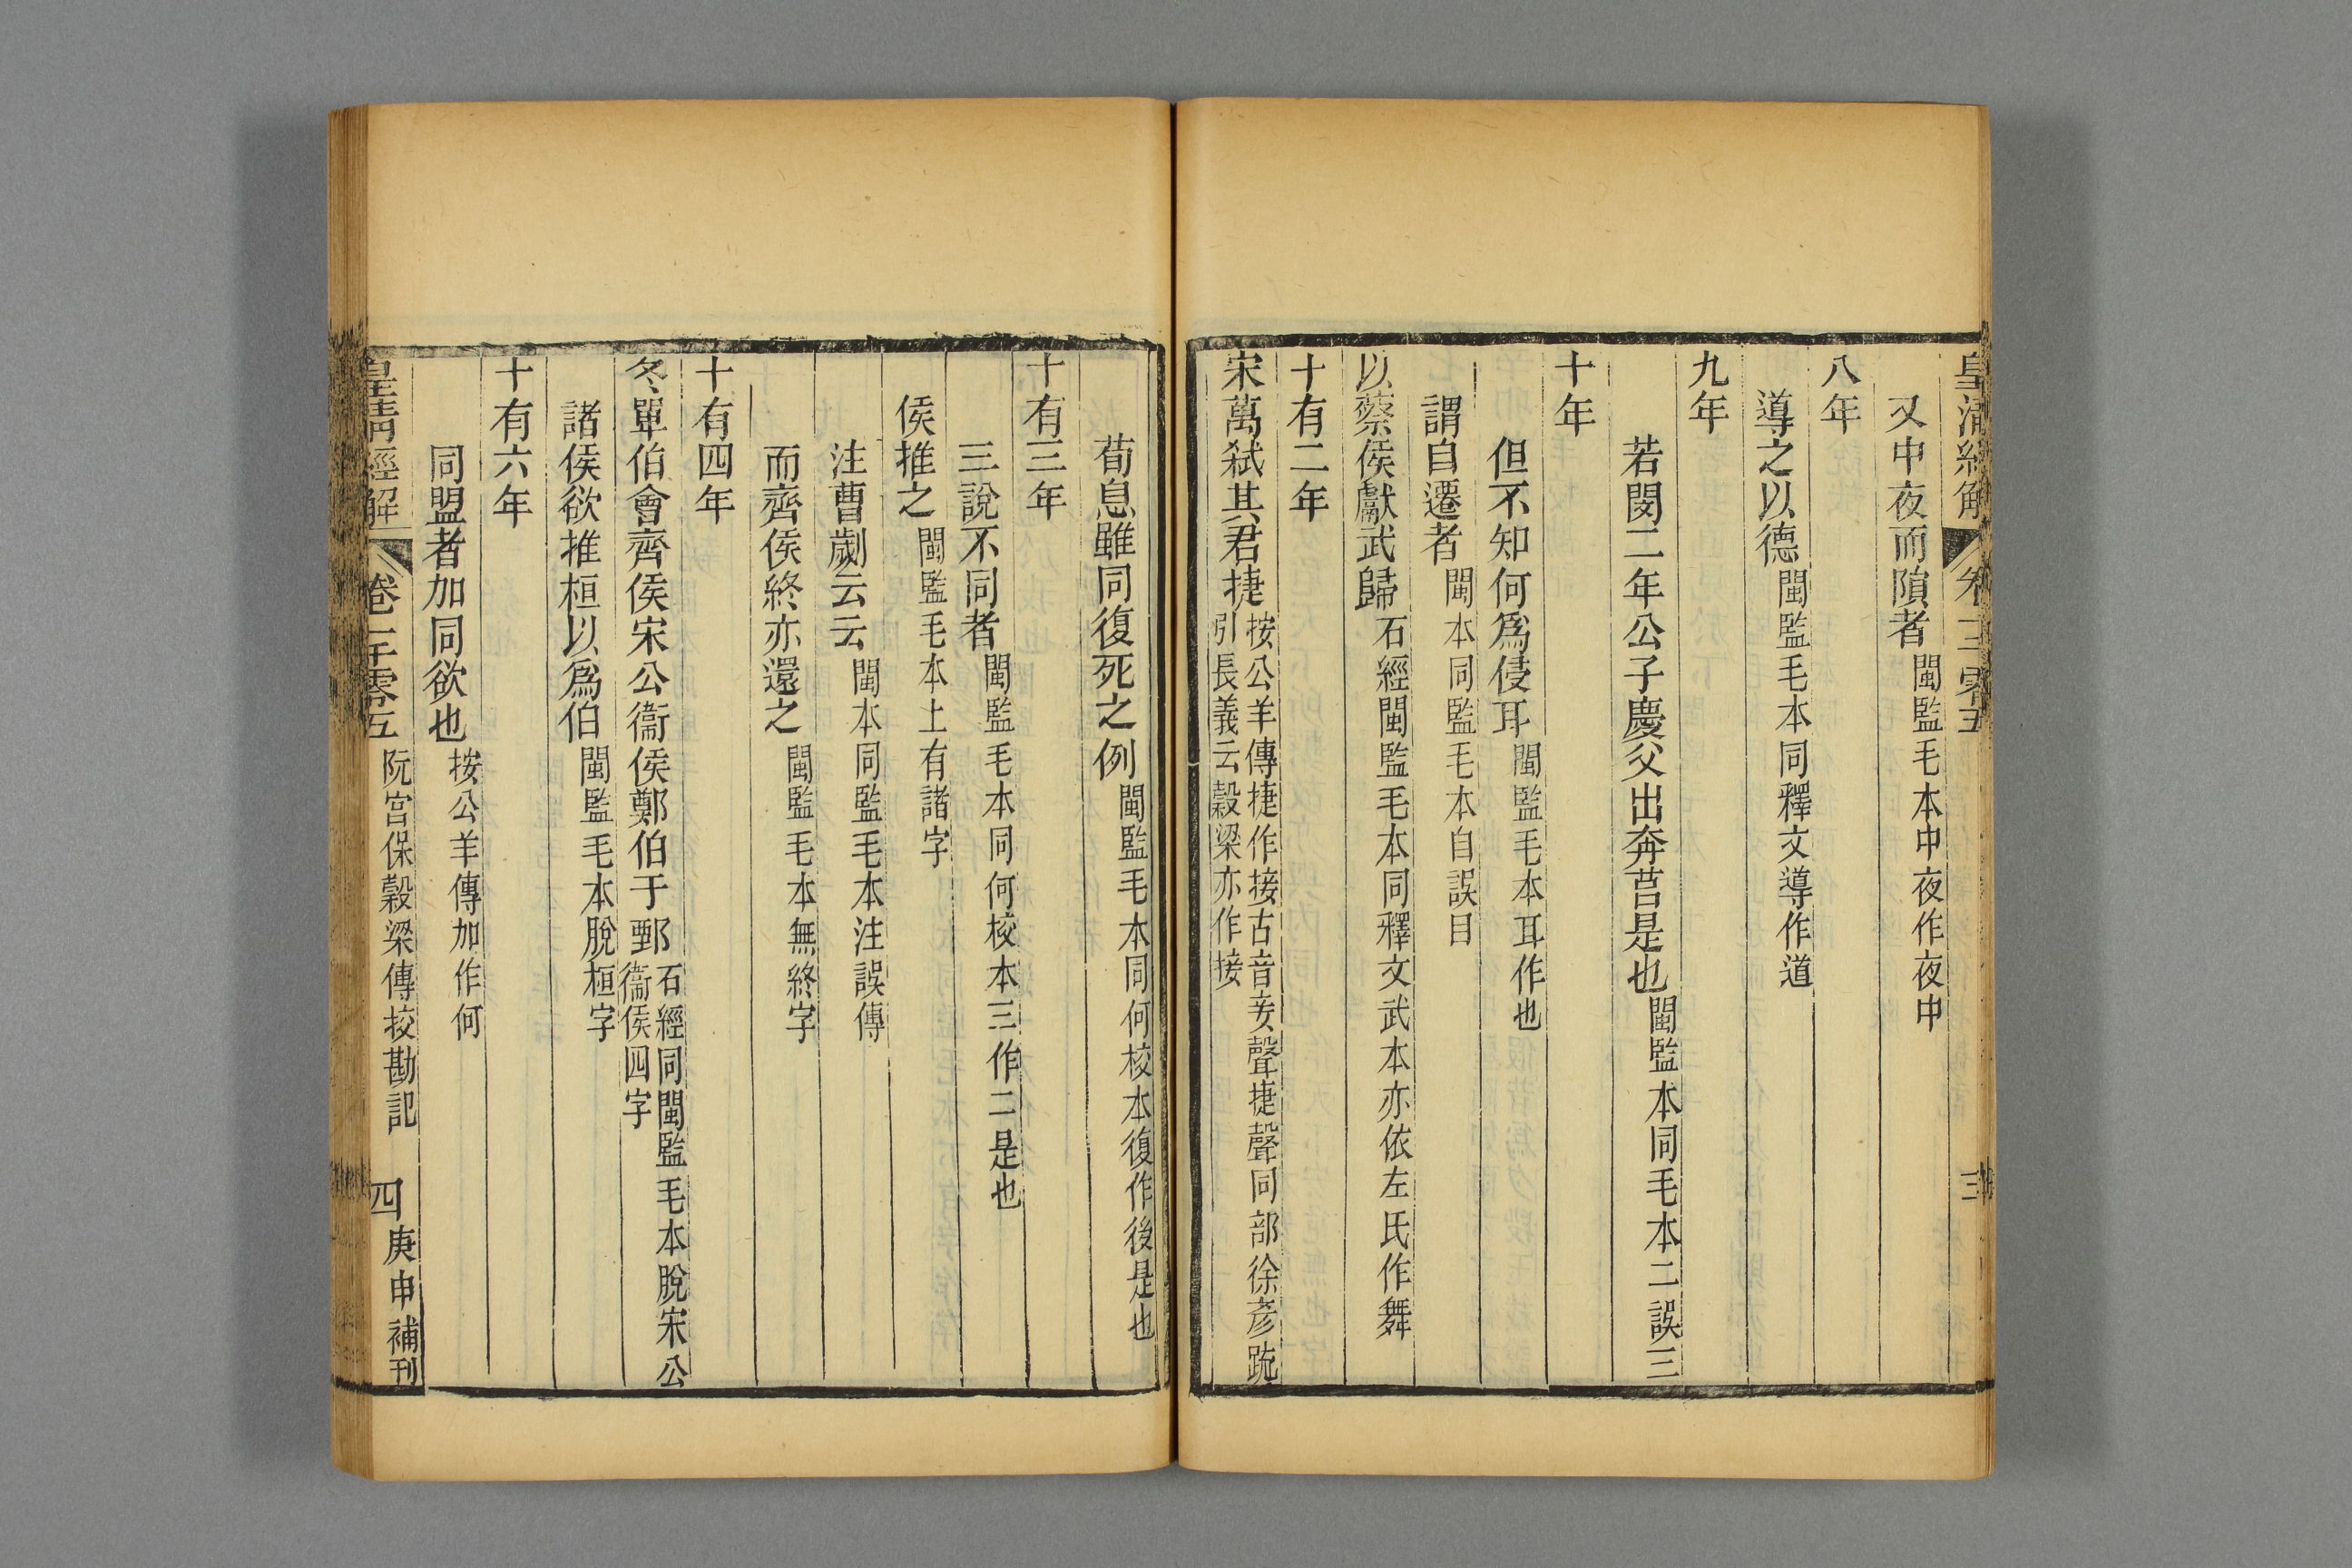 皇清經解 卷一千零五 三
又中夜而隕者閩監毛本中夜作夜中
八年
導之以德閩監毛本同釋文導作道
九年
若閔二年公子慶父出奔莒是也閩監本同毛本二誤三
十年
但不知何爲侵耳閩監毛本耳作也
謂自遷者閩本同監毛本自誤目
以蔡侯獻武歸石經閩監毛本同釋文武本亦依左氏作舞
十有二年
宋萬弑其君捷按公羊傳捷作接古音妾聲捷聲同部徐彥疏
引長義云穀梁亦作接
荀息雖同復死之例閩監毛本同何校本復作後是也
十有三年
三說不同者閩監毛本同何校本三作二是也
侯推之閩監毛本上有諸字
注曹劌云云閩本同監毛本注誤傳
而齊侯終亦還之閩監毛本無終字
十有四年
冬單伯會齊侯宋公衞侯鄭伯于鄄石經同閩監毛本脫宋公
衞侯四字
諸侯欲推桓以爲伯閩監毛本脫桓字
十有六年
同盟者加同欲也按公羊傳加作何
皇清經解 卷一千零五 阮宮保穀梁傳挍勘記 四 庚申補刊